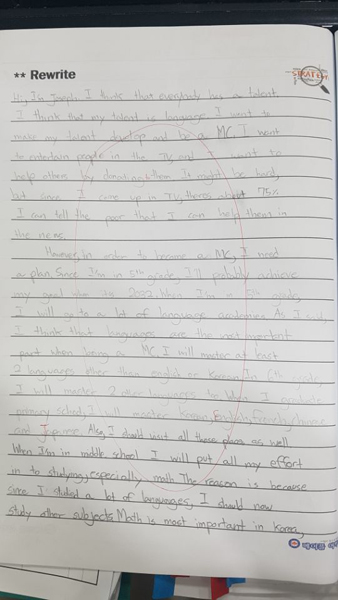 STRATEGY
** Rewrite
Hi, I'm Joseph. I think that everybody has a talent.
I think that my talent is language. I want to
make my talent develop and be a MC. I want
to entertain people in the TV and I want to
help others by donating them. It might be hard,
but since I came up in TV, theres about 75%
I can tell the poor that I can help them in
the news.
However, In order to become a MC, I need
a plan. Since I'm in 5th grade, I'll probably achieve
my goal 2032. When I'm in 5th grade,
I will go to a lot of language academies. As I said,
I think that languages are the most important
part when being a MC. I will master at least
2 languages other than english or korean. In 6th grade,
I will master 2 other languages. When I graduate
primary school, I will master Korean, English, French, chinese
and Japanese. Also, I should visit all those places as well
When I'm in middle school I will put all my effort
in to studying, especially math The reason is because
since I studied a lot of languages, I should now
study other subjects. Math is most important in Korea,